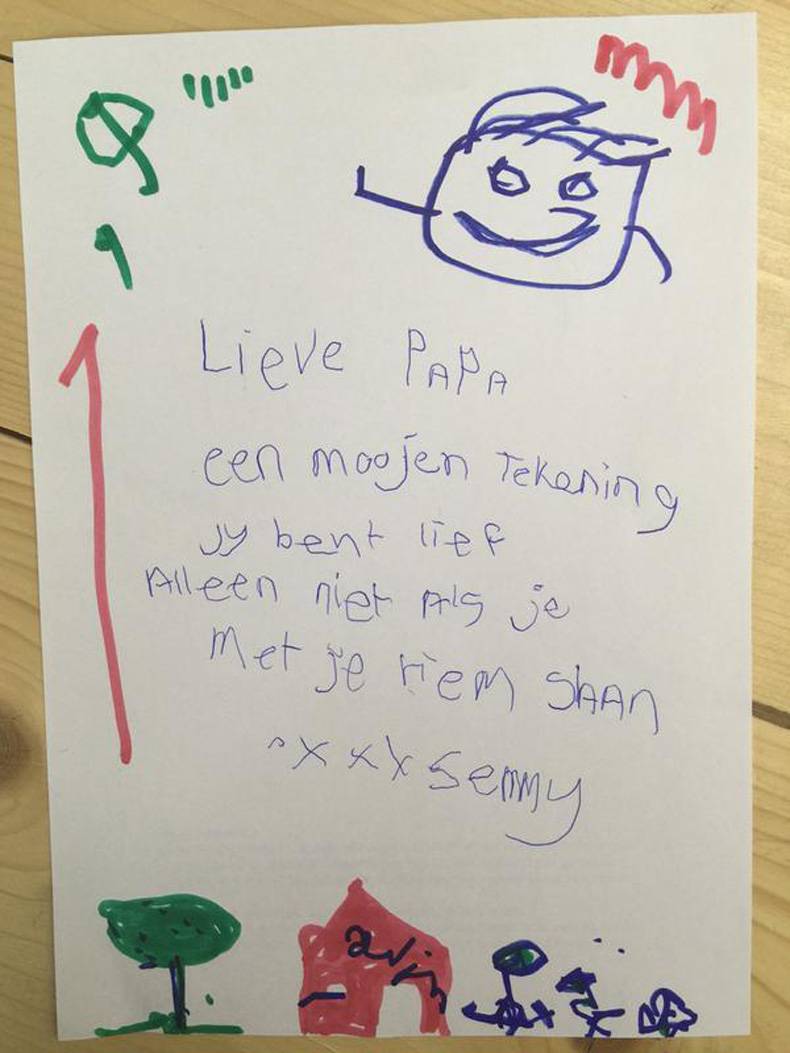 Lieve PAPA
een moojen Tekening
Jy bent lief
Alleen niet Als je
Met je riem slaan
xxx Semmy